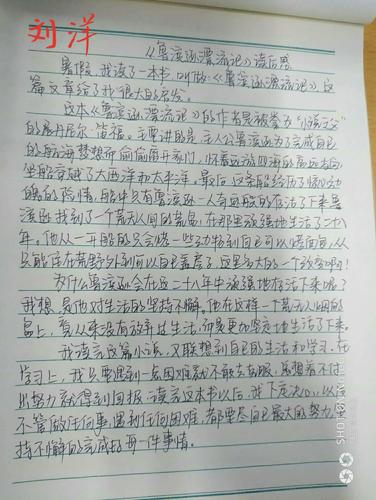 刘洋
《鲁滨逊漂流记》读后感
暑假,我读了一本书,叫做《鲁滨逊漂流记》这
篇文章给了我很大的启发。
这本《鲁滨逊漂流记》的作者是被誉为“小说之父”
的丹尼尔·笛福。主要讲的是,主人公鲁滨逊为了完成自己
的航海梦想而偷偷离开家门,怀着远游四海的高远志向
坐船穿越了大西洋和太平洋。最后,这条船经历了惊心动
魄的险情,船中只有鲁滨逊一人奇迹般的存活了下来鲁
滨逊找到了一个荒无人烟的荒岛,在那里顽强地生活了二十八
年。他从一开始的只会烧一些动物到自己可以烤面包,从
只能住在荒野外到可以自己盖房子,这是多大的一个改变啊!
为什么鲁滨逊会在这二十八年中顽强地存活下来呢?
我想是他对生活的坚持不懈。他在这样一个荒无人烟的
岛上,看从来没有放弃过生活,而是更加坚定地生活了下来。
我读完这篇小说,又联想到自己的生活和学习,在
学习上,我只要遇到一点困难就不敢去克服,总想着不付
出努力就得到回报,读完这本书以后,我下定决心,以后
不管做任何事,遇到任何困难,都要尽自己最大的努力,坚
持不懈的完成好每一件事情。
SHOT ON